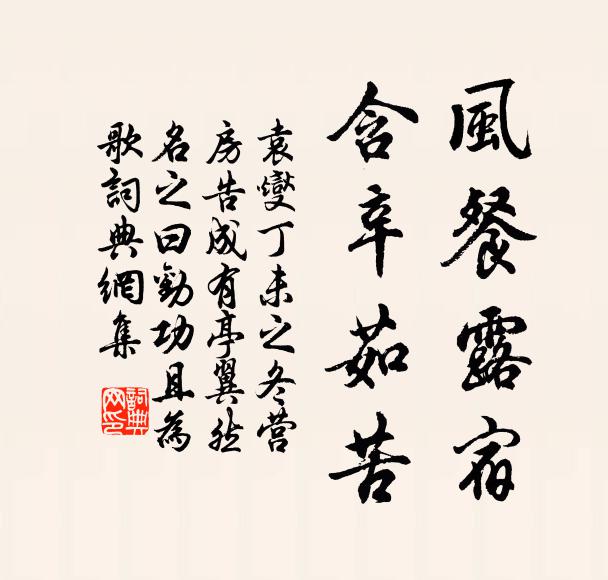 風餐露宿
含辛茹苦
袁燮丁未之冬营
房告成有亭翼然
名之曰勸功且為
歌詞典網集
詞典
网印